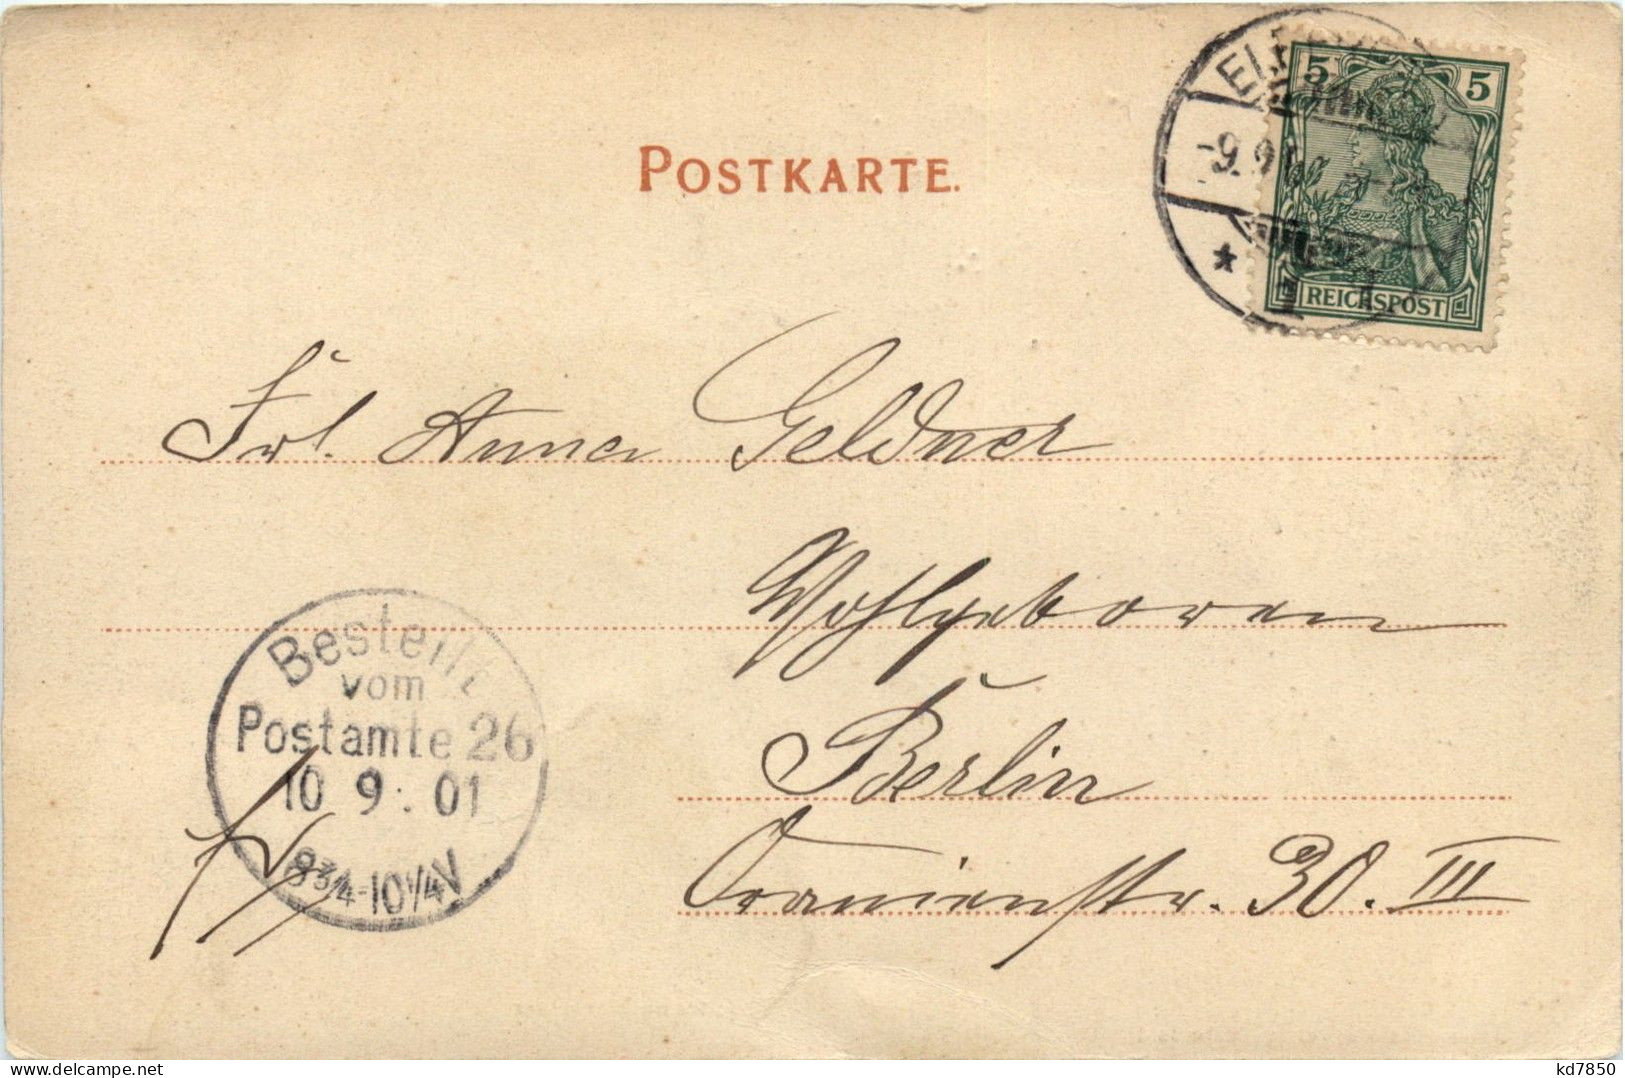 POSTKARTE.
5 5
-9. 9
REICHSPOST
Frl. Anna Geldner
Wohlgeboren
Berlin
Oranienstr. 30. III
Bestellt
vom
Postamte 26
10 9. 01
8 3/4-10 1/4 V
www.delcampe.net
kd7850